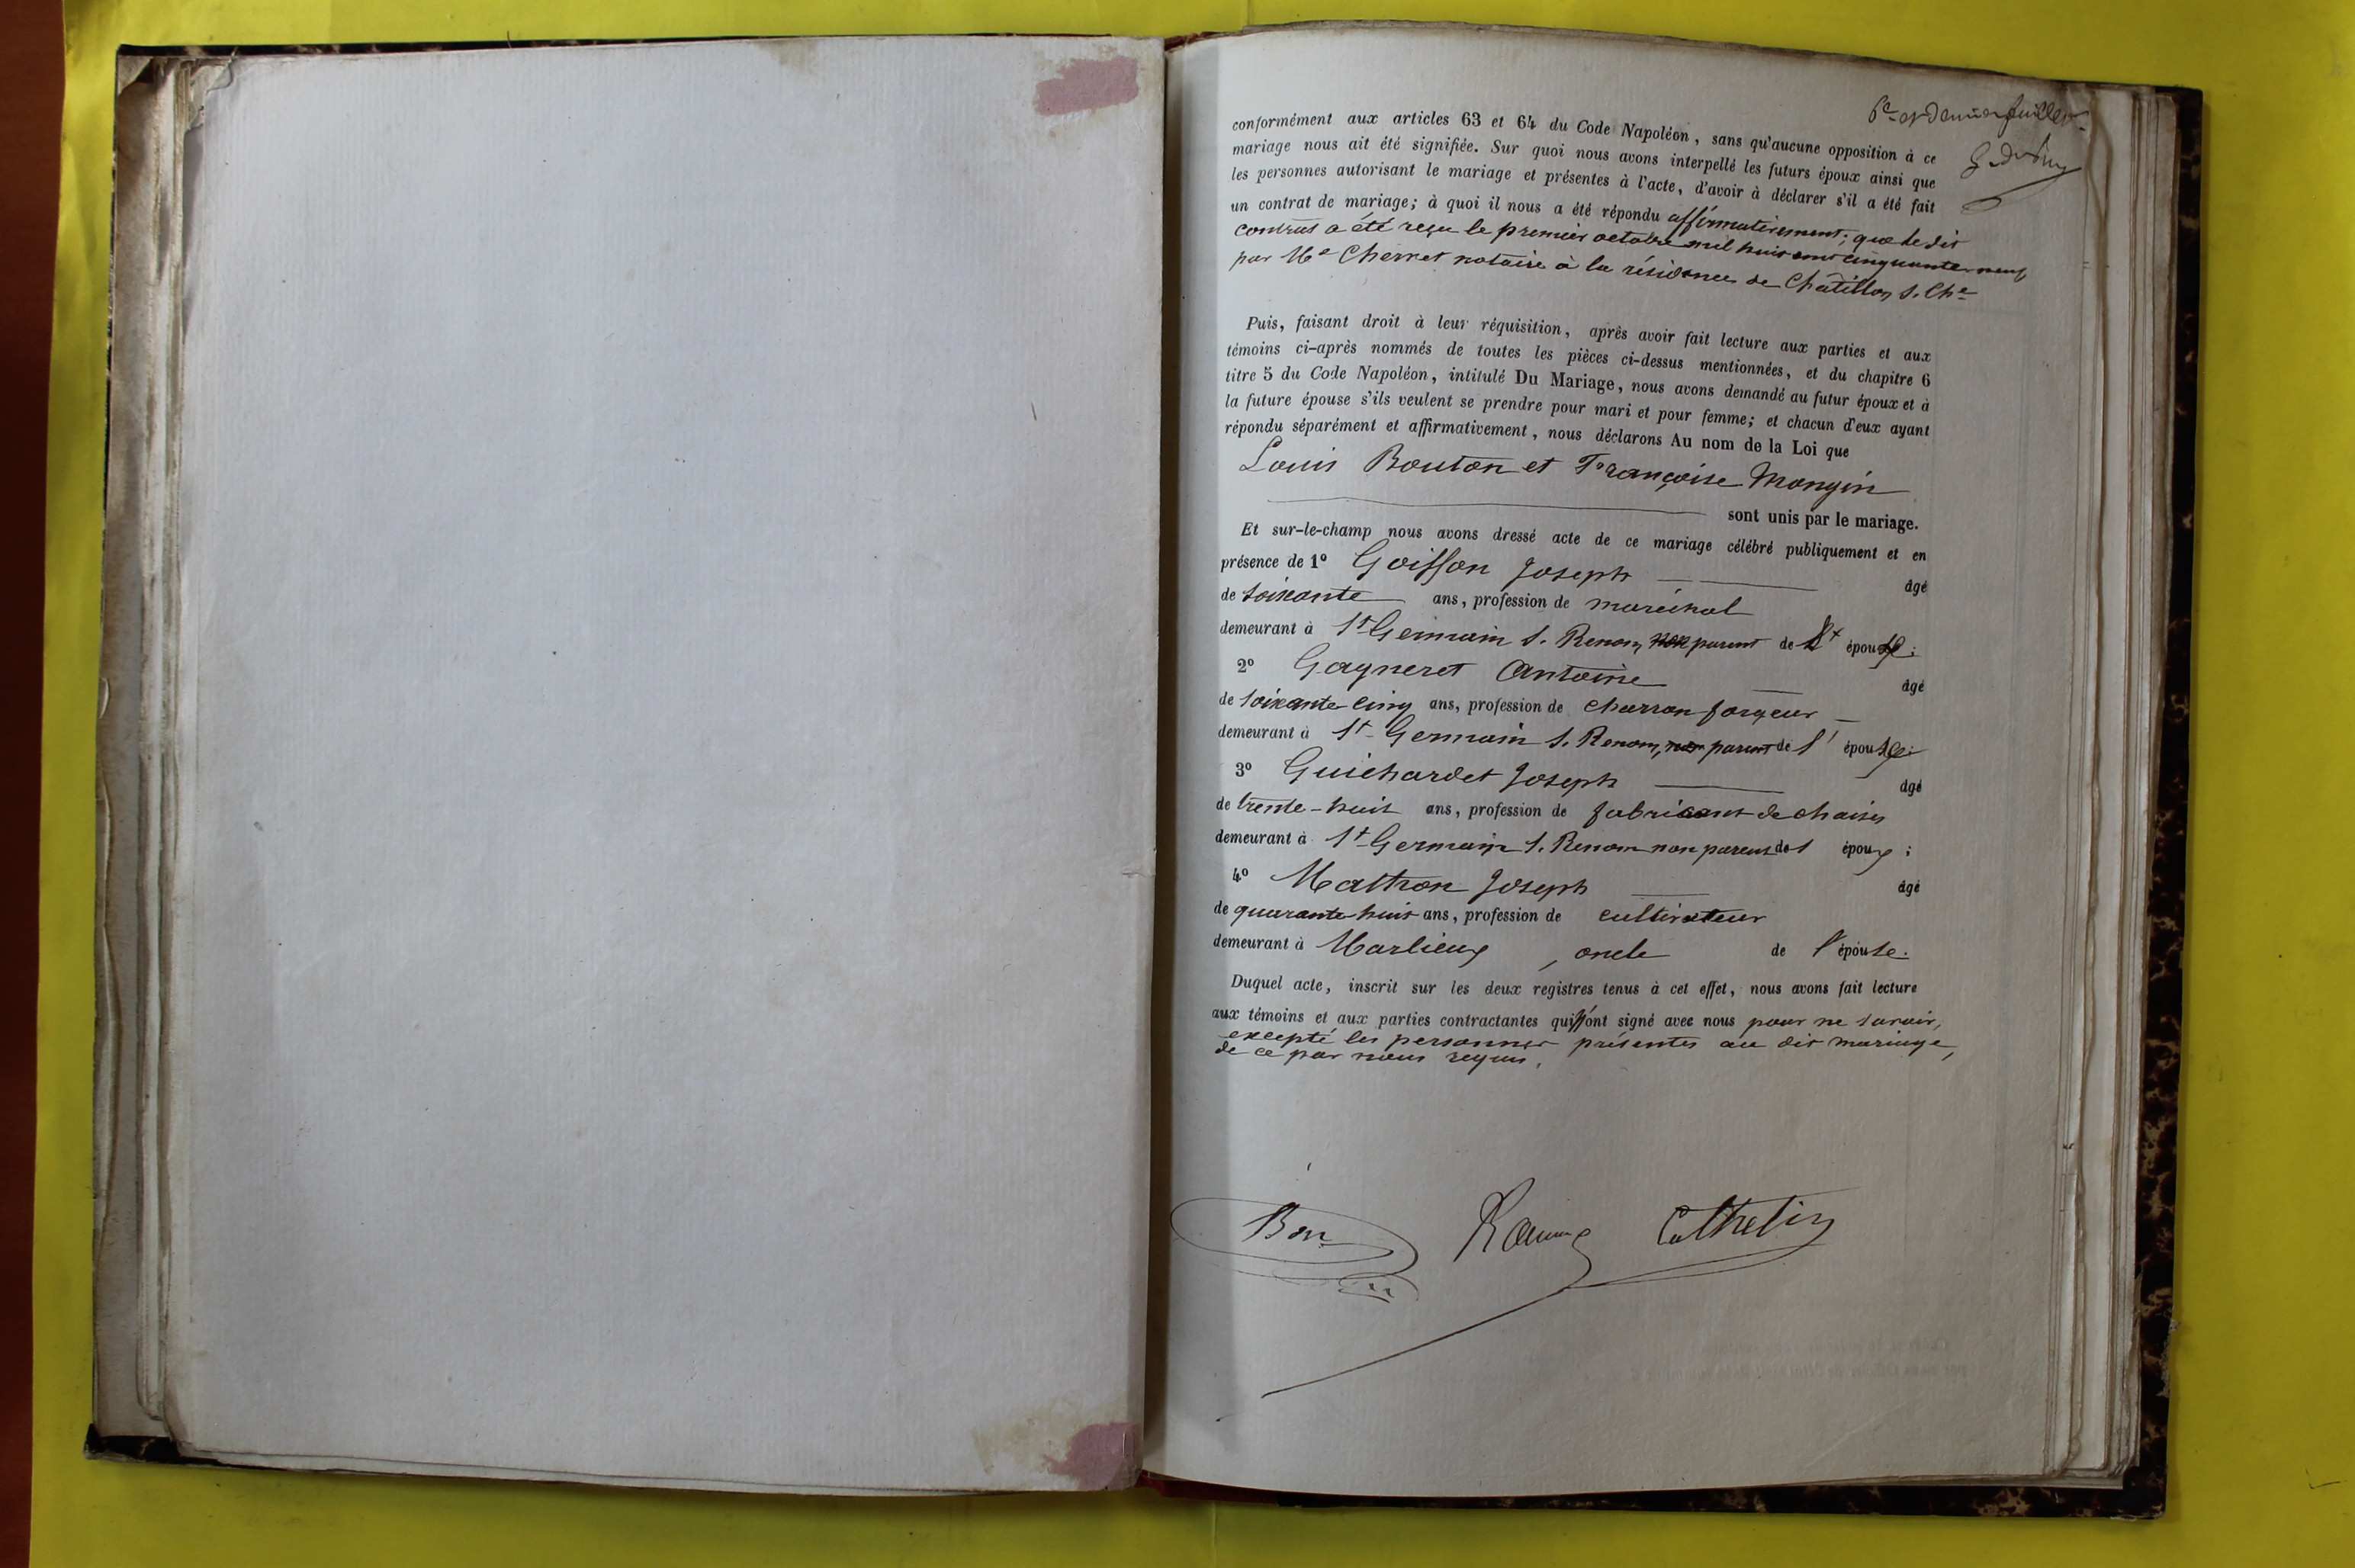 6e et dernier feuillet
conformément aux articles 63 et 64 du Code Napoléon, sans qu'aucune opposition à ce
mariage nous ait été signifiée. Sur quoi nous avons interpellé les futurs époux ainsi que
les personnes autorisant le mariage et présentes à l'acte, d'avoir à déclarer s'il a été fait
un contrat de mariage; à quoi il nous a été répondu affirmativement; que le dit
contrat a été reçu le premier octobre mil huit cent cinquante neuf
par Me Cherret notaire à la résidence de Châtillon s. Che
Puis, faisant droit à leur réquisition, après avoir fait lecture aux parties et aux
témoins ci-après nommés de toutes les pièces ci-dessus mentionnées, et du chapitre 6
titre 5 du Code Napoléon, intitulé Du Mariage, nous avons demandé au futur époux et à
la future épouse s'ils veulent se prendre pour mari et pour femme; et chacun d'eux ayant
répondu séparément et affirmativement, nous déclarons Au nom de la Loi que
Louis Bouton et Françoise Mongin
sont unis par le mariage.
Et sur-le-champ nous avons dressé acte de ce mariage célébré publiquement et en
présence de 1º Goiffon Joseph âgé
de soixante ans, profession de maréchal
demeurant à St Germain s. Renom, non parent de épouse;
2º Gagneret Antoine âgé
de soixante cinq ans, profession de charron forgeur
demeurant à St Germain s. Renom, non parent de l' épouse;
3º Guichardet Joseph âgé
de trente-huit ans, profession de fabricant de chaises
demeurant à St Germain s. Renom non parent de l époux;
4º Mathon Joseph âgé
de quarante huit ans, profession de cultivateur
demeurant à Marlieux, oncle de l'épouse.
Duquel acte, inscrit sur les deux registres tenus à cet effet, nous avons fait lecture
aux témoins et aux parties contractantes qui ont signé avec nous pour ne savoir,
excepté les personnes présentes au dit mariage,
de ce par nous requis.
Bon Cathelin